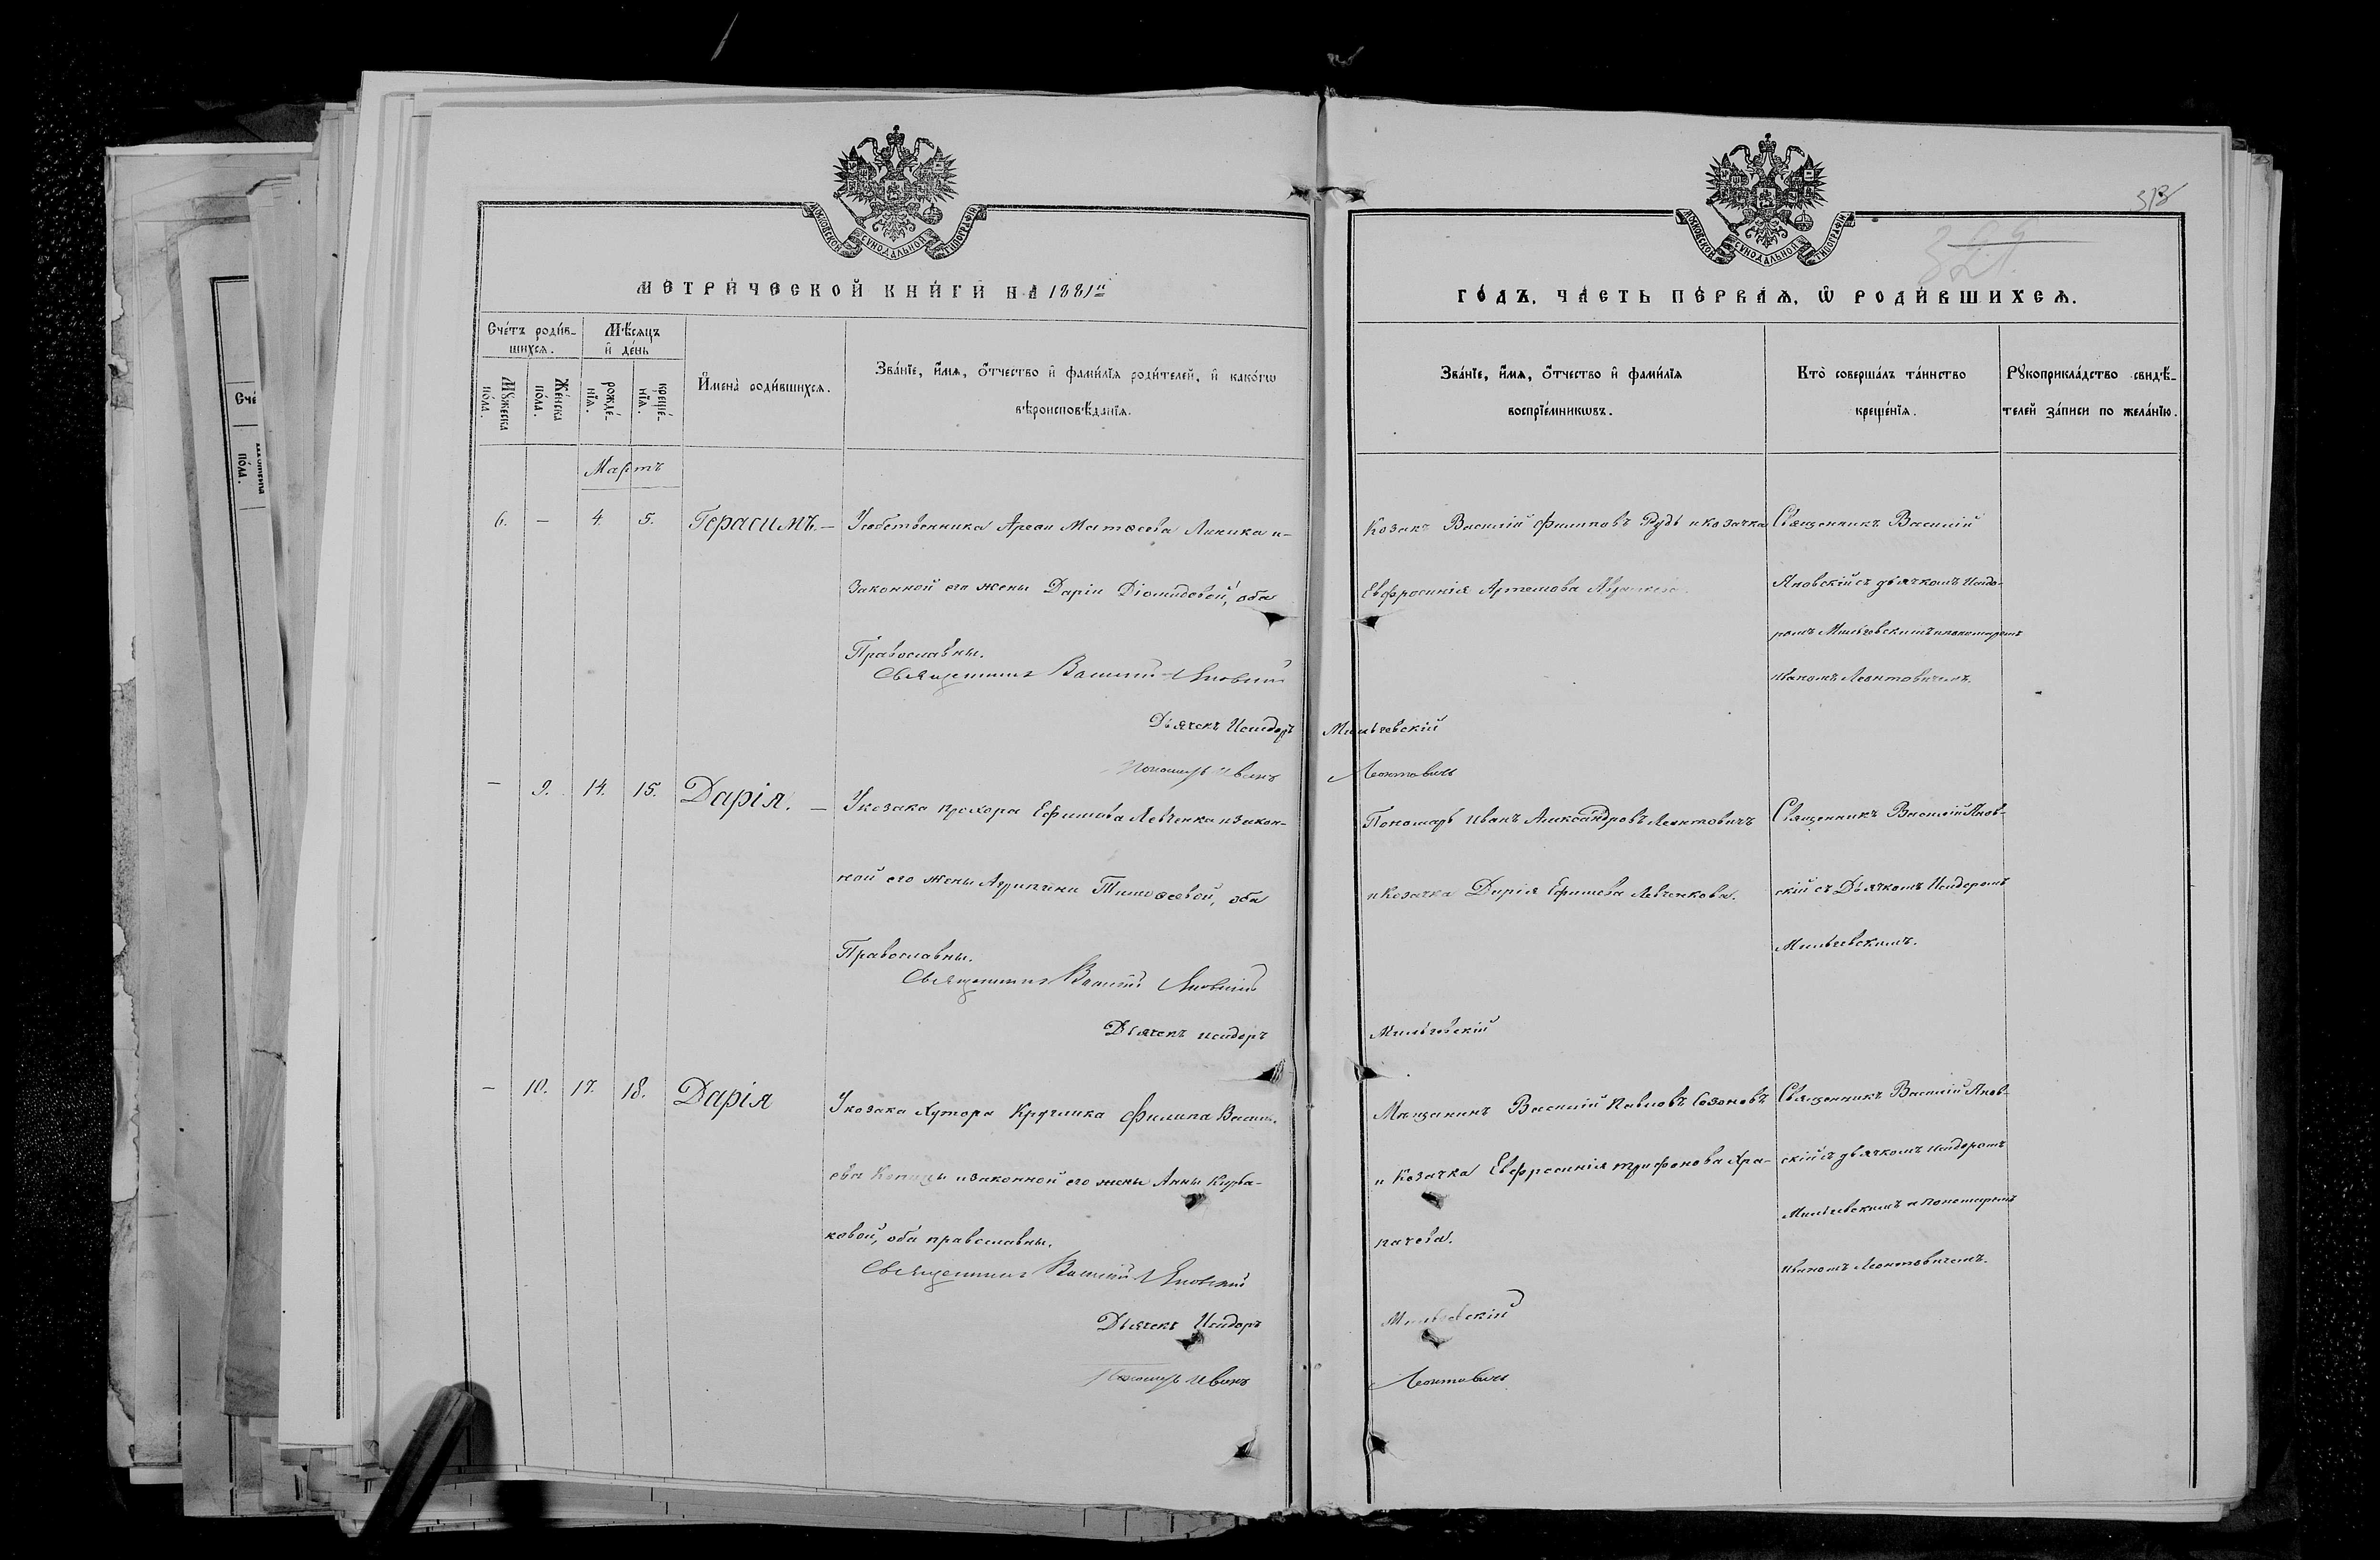 313
321
МОСКОВСКОЙ СУНОДАЛЬНОЙ ТИПОГРАФІИ
МОСКОВСКОЙ СУНОДАЛЬНОЙ ТИПОГРАФІИ
МЕТРИ́ЧЕСКОЙ КНИ́ГИ НА 1881й
ГО́ДЪ, ЧА́СТЬ ПЕ́РВАѦ, Ѿ РОДИ́ВШИХСѦ.
Сче́тъ роди́в-
шихсѧ.
Мѣ́сѧцъ
и҆ де́нь
Мꙋ́жеска по́ла.
Же́нска по́ла.
рожде́-
нїѧ.
креще́-
нїѧ.
И҆мена̀ роди́вшихсѧ.
Зва́нїе, и҆́мѧ, ѻ҆́тчество и҆ фами́лїѧ роди́телей, и҆ како́гѡ
вѣроисповѣ́данїѧ.
Зва́нїе, и҆́мѧ, ѻ҆́тчество и҆ фами́лїѧ
воспрїе́мникѡвъ.
Кто̀ соверша́лъ та́инство
креще́нїѧ.
Рꙋкоприкла́дство свидѣ́-
телей за́писи по жела́нїю.
Мартъ
6. — 4. 5. Герасимъ. —
Усобственника Матѳеева Линика и-
законной его жены Даріи Діомидовой, оба
Православны.
Священникъ Василій Яновскій
Дьячекъ Исидоръ Мильчевскій
Пономарь Иванъ Леонтовичъ
Козакъ Василій Филиповъ Рудь и козачка
Евфросинія Артемова
Священникъ Василій
Яновскій съ дьячкомъ Исидо-
ромъ Мильчевскимъ и пономаремъ
Иваномъ Леонтовичемъ.
— 9. 14. 15. Дарія. —
Укозака Прохора Ефимова Левченка и закон-
ной его жены Агрипины Тимоѳеевой, оба
Православны.
Священникъ Василій Яновскій
Дьячекъ Исидоръ Мильчевскій
Пономарь Иванъ Александровъ Леонтовичъ
и Козачка Дарія Ефимова Левченкова.
Священникъ Василій Янов-
скій съ Дьячкомъ Исидоромъ
Мильчевскимъ.
— 10. 17. 18. Дарія
Укозака Хутора Круглика Филипа Васильи-
ева и законной его жены Анны
ковой, оба православны.
Священникъ Василій Яновскій
Дьячекъ Исидоръ Мильчевскій
Пономарь Иванъ Леонтовичъ
Мещанинъ Василій Павловъ Созоновъ
и Козачка Евфросинія Трифонова Хра-
пачева.
Священникъ Василій Янов-
скій съ дьячкомъ Исидоромъ
Мильчевскимъ и пономаремъ
Иваномъ Леонтовичемъ.